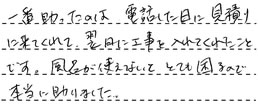 一番助ったのは 電話した日に見積り
に来てくれて、翌日に工事を入れてくれたこと
です。風呂が使えないと とても困るので
本当に助りました。